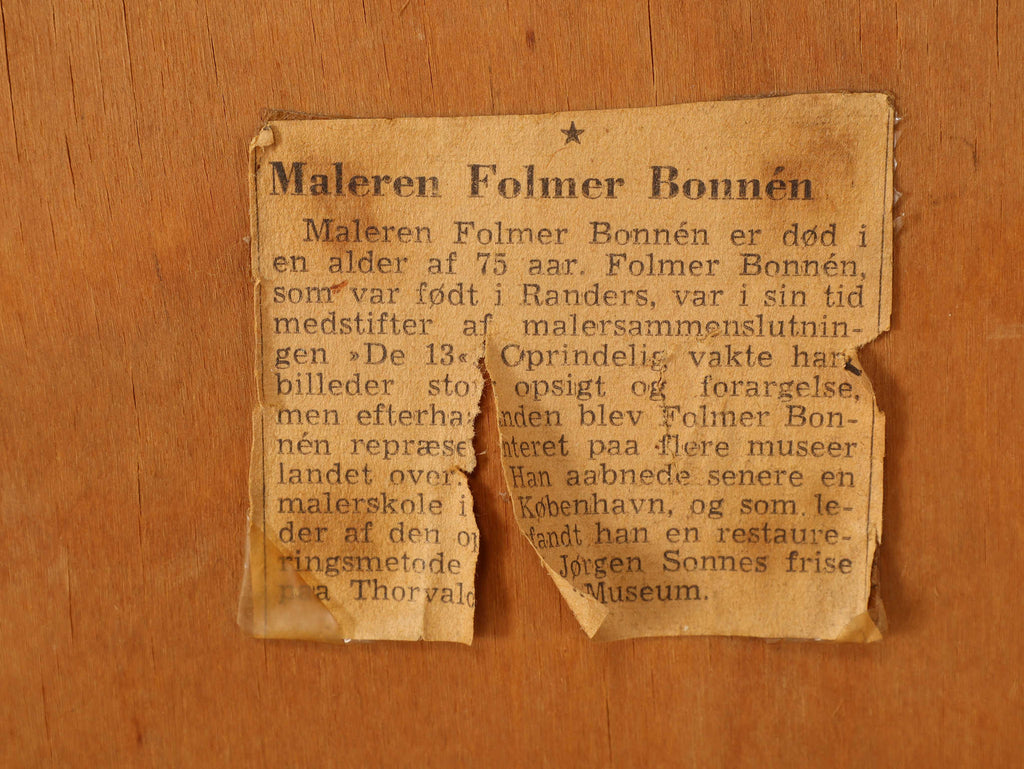 Maleren Folmer Bonnén
Maleren Folmer Bonnén er død i
en alder af 75 aar. Folmer Bonnén,
som var født i Randers, var i sin tid
medstifter af malersammenslutnin-
gen »De 13«. Oprindelig vakte hans
billeder stor opsigt og forargelse,
men efterhaanden blev Folmer Bon-
nén repræsenteret paa flere museer
landet over. Han aabnede senere en
malerskole i København, og som le-
der af den opfandt han en restaure-
ringsmetode Jørgen Sonnes frise
paa Thorvald Museum.